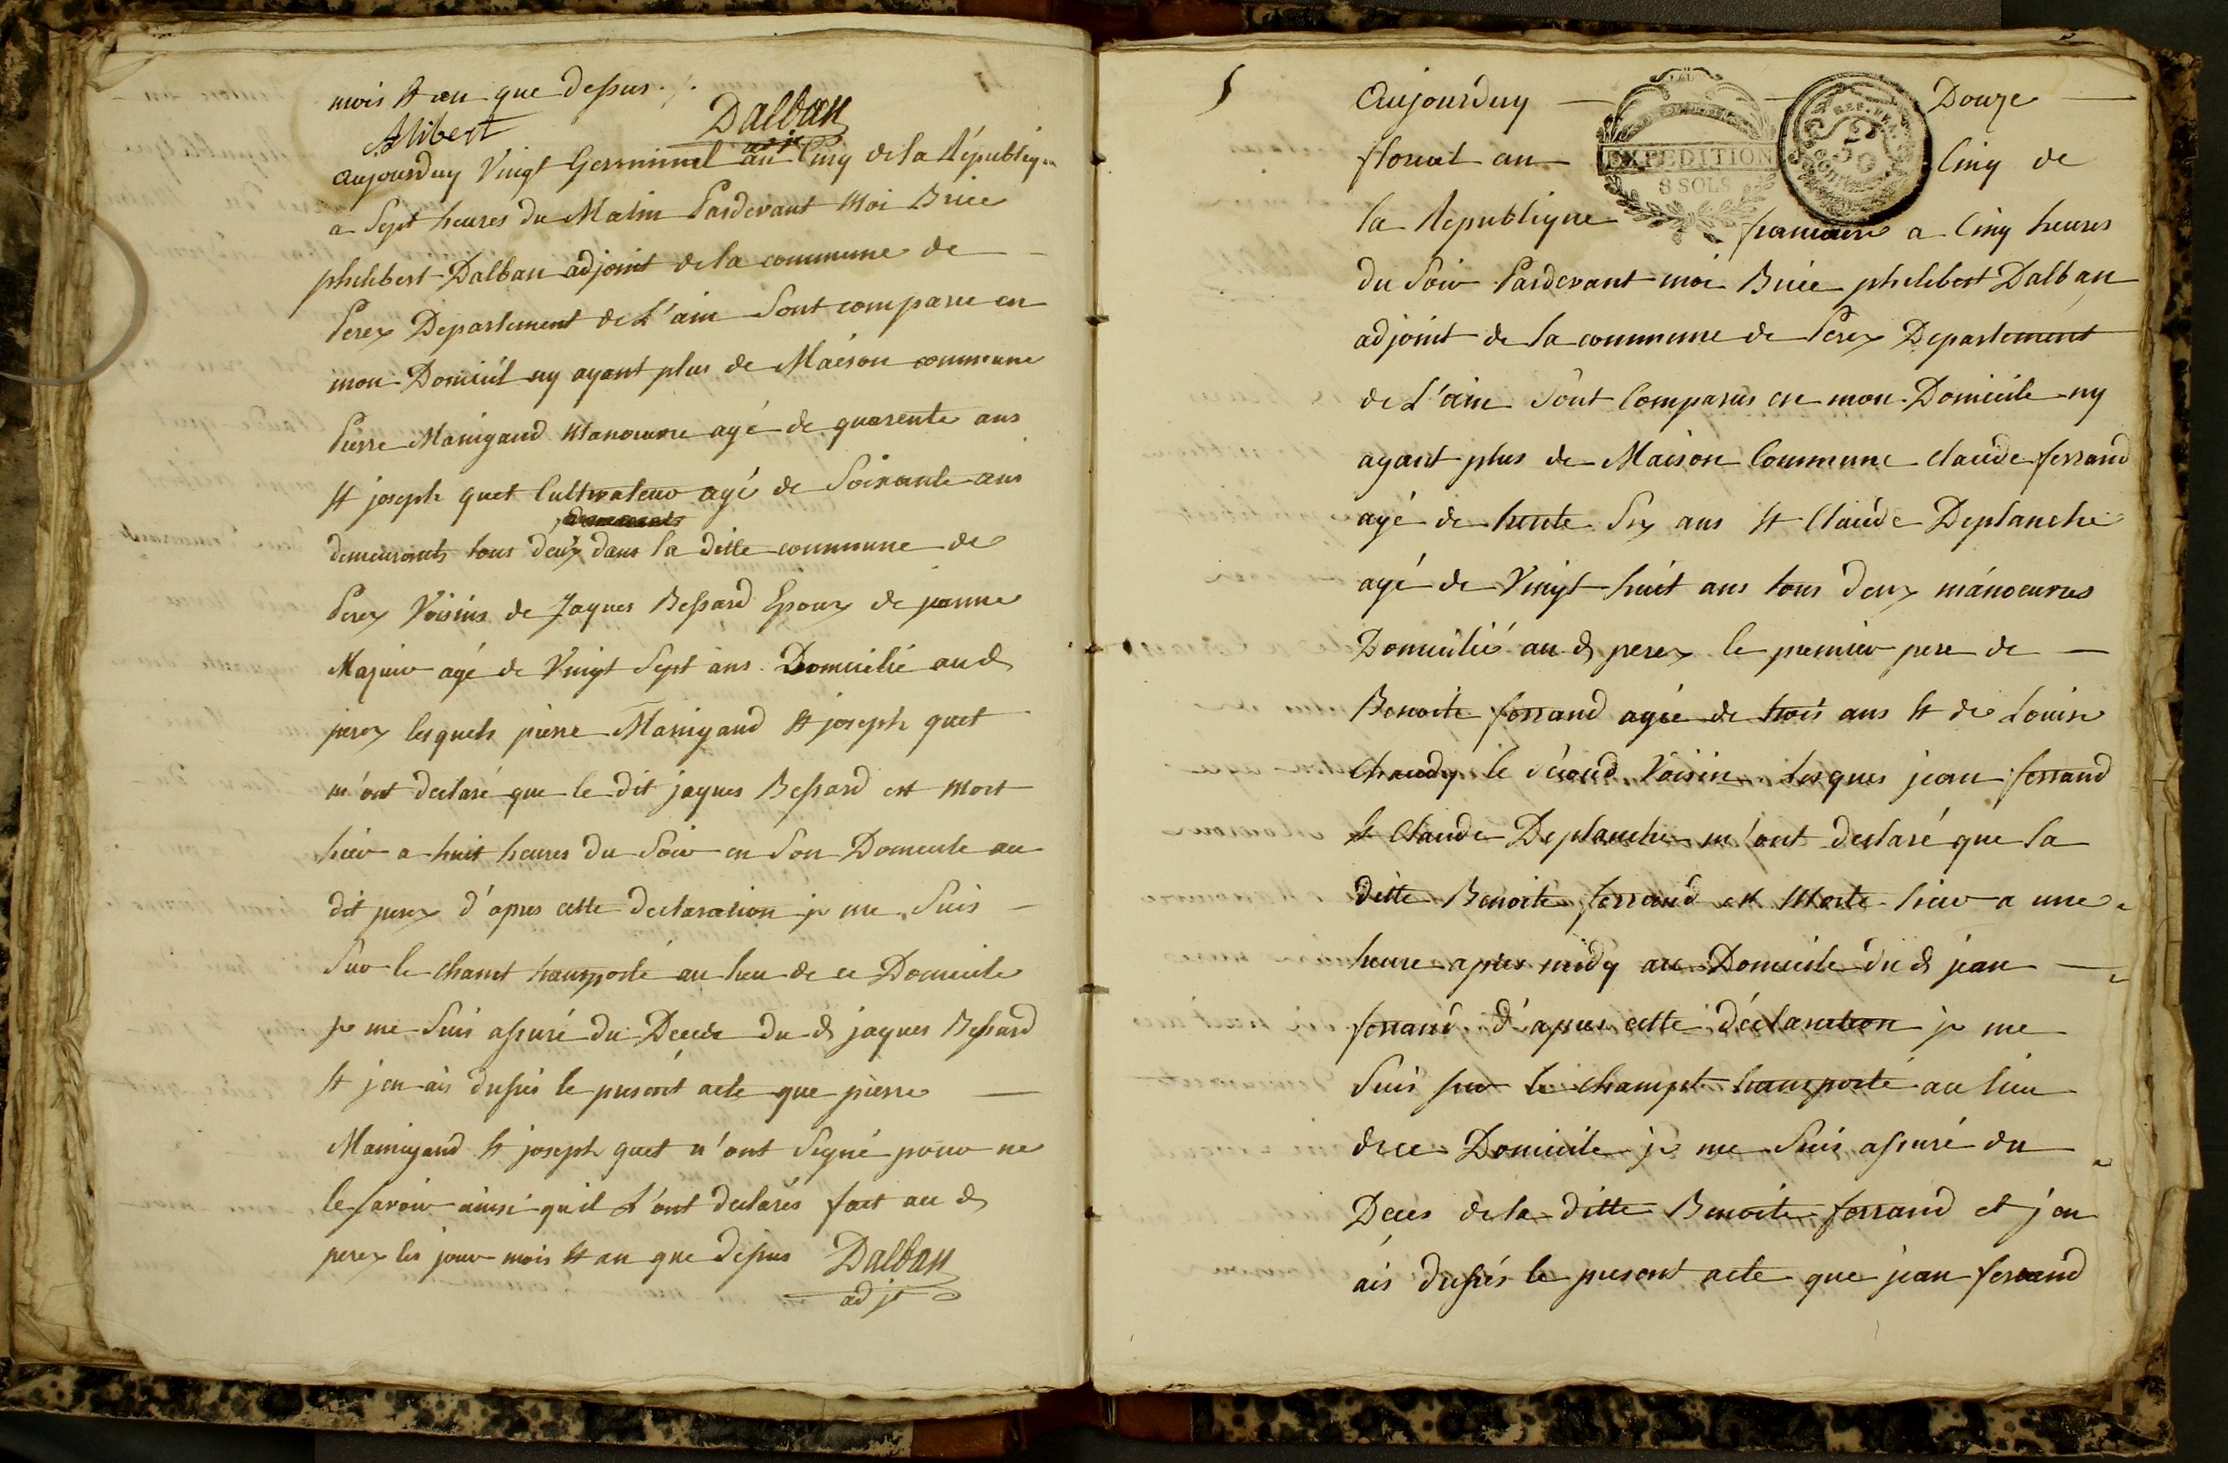 mois et an que dessus ./.
Alibert Dalban
adjt
aujourduy Vingt Germinal an Cinq de la Républiq
a Sept heures du Matin Pardevant Moi Brice
philibert Dalban adjoint de la commune de
Perex Departement de L'ain Sont comparu en
mon Domicil ny ayant plus de Maison commune
Pierre Manigand Manœuvre agé de quarente ans
et joseph quet Cultivateur agé de Soixante ans
demeurants tous deux dans la ditte commune de
Perex Voisins de Jaques Bessard Epoux de jeanne
Majuir agé de Vingt Sept ans Domicilié aud
perex lesquels pierre Manigand et joseph quet
m'ont declaré que le dit jaques Bessard est Mort
hier a huit heures du Soir en Son Domicile au
dit perex d'apres cette declaration je me Suis
Sur le chamt transporté au lieu de ce Domicile
je me Suis assuré du Décés du d jaques Bessard
et j'en ais dressés le present acte que pierre
Manigand et joseph quet n'ont Signé pour ne
le savoir ainsi quil L'ont declarés fait au d
perex les jour mois et an que dessus Dalban
adjt
5
Aujourduy Douze
floreal an Cinq de
EXPEDITION
8 SOLS
la Republique francaise a Cinq heures
du Soir Pardevant moi Brice philibert Dalban
adjoint de la commune de Perex Departement
de L'ain Sont Comparus en mon Domicile ny
ayant plus de Maison Commune claude ferrand
agé de trente Six ans et Claude Deplanche
agé de Vingt huit ans tous deux manoeuvres
Domicilié au d perex le premier pere de
Benoite ferrand agée de trois ans et de Louise
Chaudy le Second Voisin Lesques jean ferrand
et Claude Deplanche m'ont declaré que la
ditte Benoite ferrand est Morte hier a une
heure apres midy au Domicile du d jean
ferrand d'apres cette déclaration je me
Suis sur le champt transporté au lieu
de ce Domicile je me Suis assuré du
Deces de la ditte Benoite ferrand et j'en
ais dressés le present acte que jean ferrand